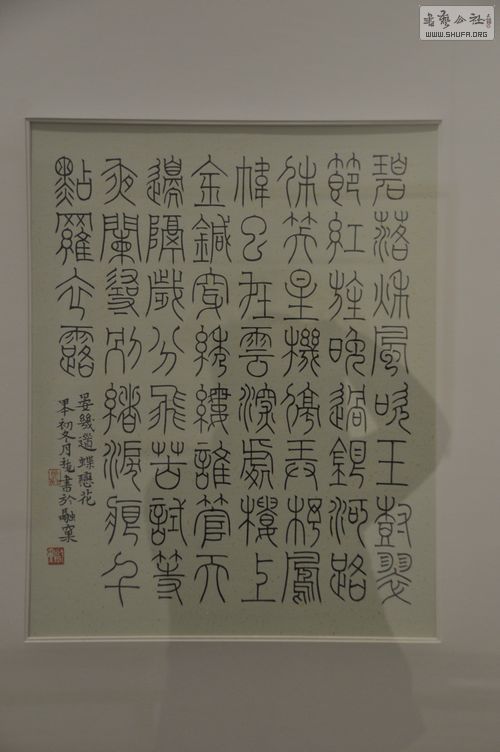 書藝公社
WWW.SHUFA.ORG
碧落秋風吹王樹翠
節紅旌晚過銀河路
休笑星機停弄杼鳳
幃已在雲深處樓上
金鍼穿綉縷誰管天
邊隔歲分飛苦試等
夜闌尋別緒淚痕千
點羅衣露
晏幾道 蝶戀花
初冬月 書於融窠